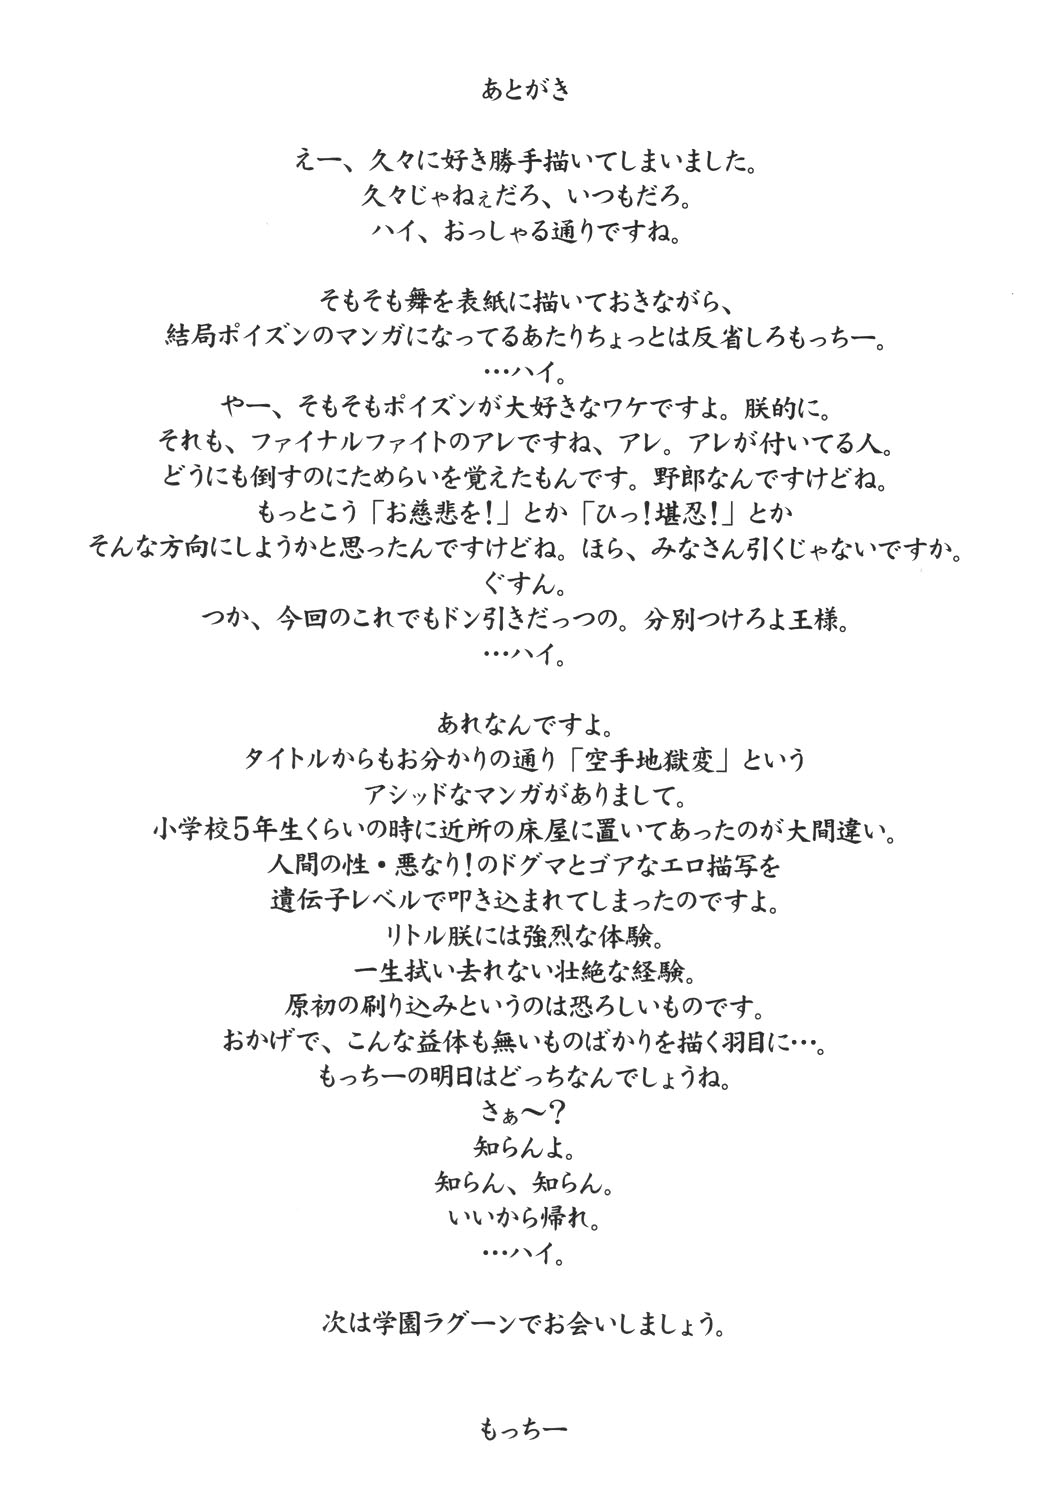 あとがき
えー、久々に好き勝手描いてしまいました。
久々じゃねぇだろ、いつもだろ。
ハイ、おっしゃる通りですね。
そもそも舞を表紙に描いておきながら、
結局ポイズンのマンガになってるあたりちょっとは反省しろもっちー。
…ハイ。
やー、そもそもポイズンが大好きなワケですよ。朕的に。
それも、ファイナルファイトのアレですね、アレ。アレが付いてる人。
どうにも倒すのにためらいを覚えたもんです。野郎なんですけどね。
もっとこう「お慈悲を!」とか「ひっ!堪忍!」とか
そんな方向にしようかと思ったんですけどね。ほら、みなさん引くじゃないですか。
ぐすん。
つか、今回のこれでもドン引きだっつの。分別つけろよ王様。
…ハイ。
あれなんですよ。
タイトルからもお分かりの通り「空手地獄変」という
アシッドなマンガがありまして。
小学校5年生くらいの時に近所の床屋に置いてあったのが大間違い。
人間の性・悪なり!のドグマとゴアなエロ描写を
遺伝子レベルで叩き込まれてしまったのですよ。
リトル朕には強烈な体験。
一生拭い去れない壮絶な経験。
原初の刷り込みというのは恐ろしいものです。
おかげで、こんな益体も無いものばかりを描く羽目に…。
もっちーの明日はどっちなんでしょうね。
さぁ〜?
知らんよ。
知らん、知らん。
いいから帰れ。
…ハイ。
次は学園ラグーンでお会いしましょう。
もっちー